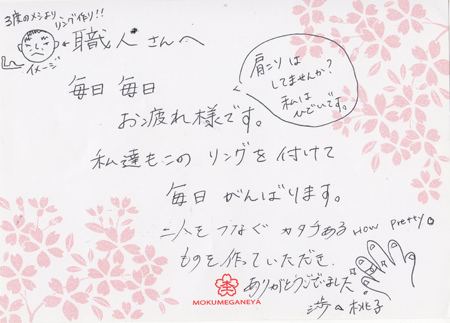 3度のメシよりリング作り!!
イメージ
職人さんへ
肩こりは
してませんか?
私は
ひどいです。
毎日毎日
お疲れ様です。
私達もこのリングを付けて
毎日がんばります。
二人をつなぐカタチある
ものを作っていただき、
ありがとうございました
How Pretty
桃子
MOKUMEGANEYA